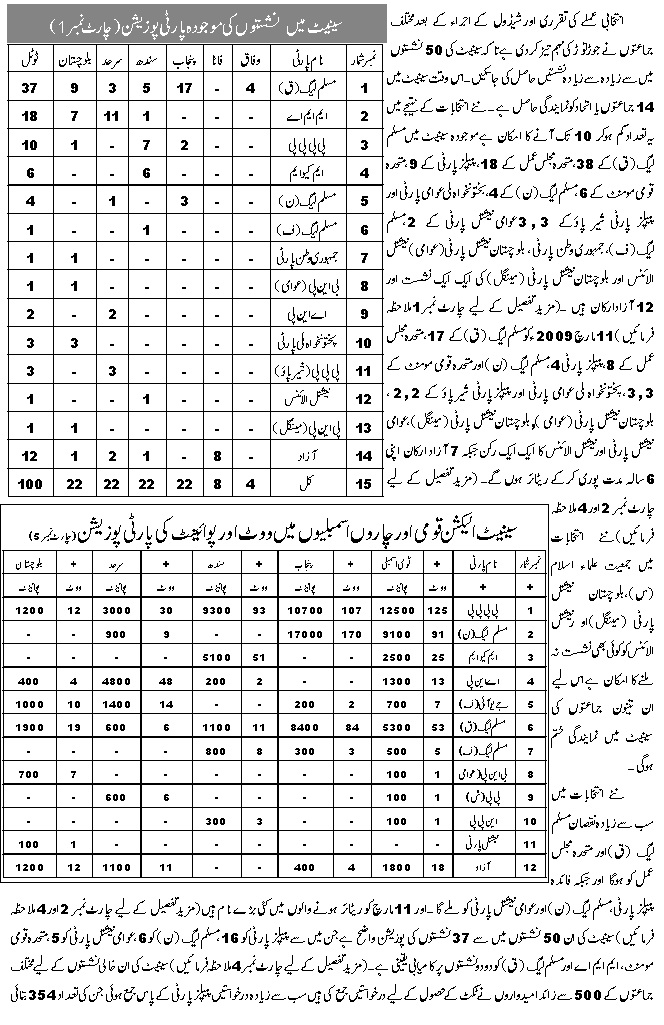 انتخابی عملے کی تقرری اور شیڈول کے اجراء کے بعد مختلف
جماعتوں نے جوڑ توڑ کی مہم تیز کر دی ہے تاکہ سینیٹ کی 50 نشستوں
میں سے زیادہ سے زیادہ نشستیں حاصل کی جا سکیں۔ اس وقت سینیٹ میں
14 جماعتوں یا اتحاد کو نمائندگی حاصل ہے۔ نئے انتخابات کے نتیجے میں
یہ تعداد کم ہو کر 10 تک آنے کا امکان ہے موجودہ سینیٹ میں مسلم
لیگ (ق) کے 38، متحدہ مجلس عمل کے 18، پیپلز پارٹی کے 9، متحدہ
قومی مومنٹ کے 6، مسلم لیگ (ن) کے 4، پختونخواہ ملی عوامی پارٹی اور
پیپلز پارٹی شیر پاؤ کے 3,3 عوامی نیشنل پارٹی کے 2، مسلم
لیگ (ف)، جمہوری وطن پارٹی، بلوچستان نیشنل پارٹی (عوامی) نیشنل
الائنس اور بلوچستان نیشنل پارٹی (مینگل) کی ایک ایک نشست اور
12 آزاد ارکان ہیں۔ (مزید تفصیل کے لیے چارٹ نمبر 1 ملاحظہ
فرمائیں) 11 مارچ 2009ء کو مسلم لیگ (ق) کے 17، متحدہ مجلس
عمل کے 8، پیپلز پارٹی 4، مسلم لیگ (ن) اور متحدہ قومی مومنٹ کے
3,3، پختونخواہ ملی عوامی پارٹی اور پیپلز پارٹی شیر پاؤ کے 2,2،
بلوچستان نیشنل پارٹی (عوامی)، بلوچستان نیشنل پارٹی (مینگل)، عوامی
نیشنل پارٹی اور نیشنل الائنس کا ایک ایک رکن جبکہ 7 آزاد ارکان اپنی
6 سالہ مدت پوری کر کے ریٹائر ہوں گے۔ (مزید تفصیل کے لیے
چارٹ نمبر 2 اور 4 ملاحظہ
فرمائیں) نئے انتخابات
میں جمعیت علماء اسلام
(س)، بلوچستان نیشنل
پارٹی (مینگل) اور نیشنل
الائنس کو کوئی بھی نشست نہ
ملنے کا امکان ہے اس لیے
ان تینوں جماعتوں کی
سینیٹ میں نمائندگی ختم
ہوگی۔
نئے انتخابات میں
سب سے زیادہ نقصان مسلم
لیگ (ق) اور متحدہ مجلس
عمل کو ہوگا اور جبکہ فائدہ
سینیٹ میں نشستوں کی موجودہ پارٹی پوزیشن (چارٹ نمبر 1)
نمبر شمار نام پارٹی وفاق فاٹا پنجاب سندھ سرحد بلوچستان ٹوٹل
1 مسلم لیگ (ق) 4 - 17 5 3 9 37
2 ایم ایم اے - - - 1 11 7 18
3 پی پی پی پی - - 2 7 - 1 10
4 ایم کیو ایم - - - 6 - - 6
5 مسلم لیگ (ن) - - 3 - 1 - 4
6 مسلم لیگ (ف) - - - 1 - - 1
7 جمہوری وطن پارٹی - - - - - 1 1
8 بی این پی (عوامی) - - - - - 1 1
9 اے این پی - - - - 2 - 2
10 پختونخواہ ملی پارٹی - - - - - 3 3
11 پی پی پی (شیر پاؤ) - - - - 3 - 3
12 نیشنل الائنس - - - 1 - - 1
13 بی این پی (مینگل) - - - - - 1 1
14 آزاد - 8 - 1 2 1 12
15 کل 4 8 22 22 22 22 100
سینیٹ الیکشن قومی اور چاروں اسمبلیوں میں ووٹ اور پوائنٹ کی پارٹی پوزیشن (چارٹ نمبر 5)
نمبر شمار نام پارٹی + قومی اسمبلی + پنجاب + سندھ + سرحد + بلوچستان
+ + ووٹ پوائنٹ ووٹ پوائنٹ ووٹ پوائنٹ ووٹ پوائنٹ ووٹ پوائنٹ
1 پی پی پی پی 125 12500 107 10700 93 9300 30 3000 12 1200
2 مسلم لیگ (ن) 91 9100 170 17000 - - 9 900 - -
3 ایم کیو ایم 25 2500 - - 51 5100 - - - -
4 اے این پی 13 1300 - - 2 200 48 4800 4 400
5 جے یو آئی (ف) 7 700 2 200 - - 14 1400 10 1000
6 مسلم لیگ (ق) 53 5300 84 8400 11 1100 6 600 19 1900
7 مسلم لیگ (ف) 5 500 3 300 8 800 - - - -
8 بی این پی (عوامی) 1 100 - - - - - - 7 700
9 پی پی (ش) 1 100 - - - - 6 600 - -
10 این پی پی 1 100 - - 3 300 - - - -
11 نیشنل پارٹی - - - - - - - - 1 100
12 آزاد 18 1800 4 400 - - 11 1100 12 1200
پیپلز پارٹی، مسلم لیگ (ن) اور عوامی نیشنل پارٹی کو ملے گا۔ اور 11 مارچ کو ریٹائر ہونے والوں میں کئی بڑے نام ہیں (مزید تفصیل کے لیے چارٹ نمبر 2 اور 4 ملاحظہ
فرمائیں) سینیٹ کی ان 50 نشستوں میں سے 37 نشستوں کی پوزیشن واضح ہے جن میں سے پیپلز پارٹی کو 16، مسلم لیگ (ن) کو 6، عوامی نیشنل پارٹی کو 5، متحدہ قومی
مومنٹ، ایم ایم اے اور مسلم لیگ (ق) کو دو دو نشستوں پر کامیابی یقینی ہے۔ (مزید تفصیل کے لیے چارٹ نمبر 4 ملاحظہ فرمائیں) سینیٹ کی ان خالی نشستوں کے لیے مختلف
جماعتوں کے 500 سے زائد امیدواروں نے ٹکٹ کے حصول کے لیے درخواستیں جمع کی ہیں سب سے زیادہ درخواستیں پیپلز پارٹی کے پاس جمع ہوئی جن کی تعداد 354 بتائی